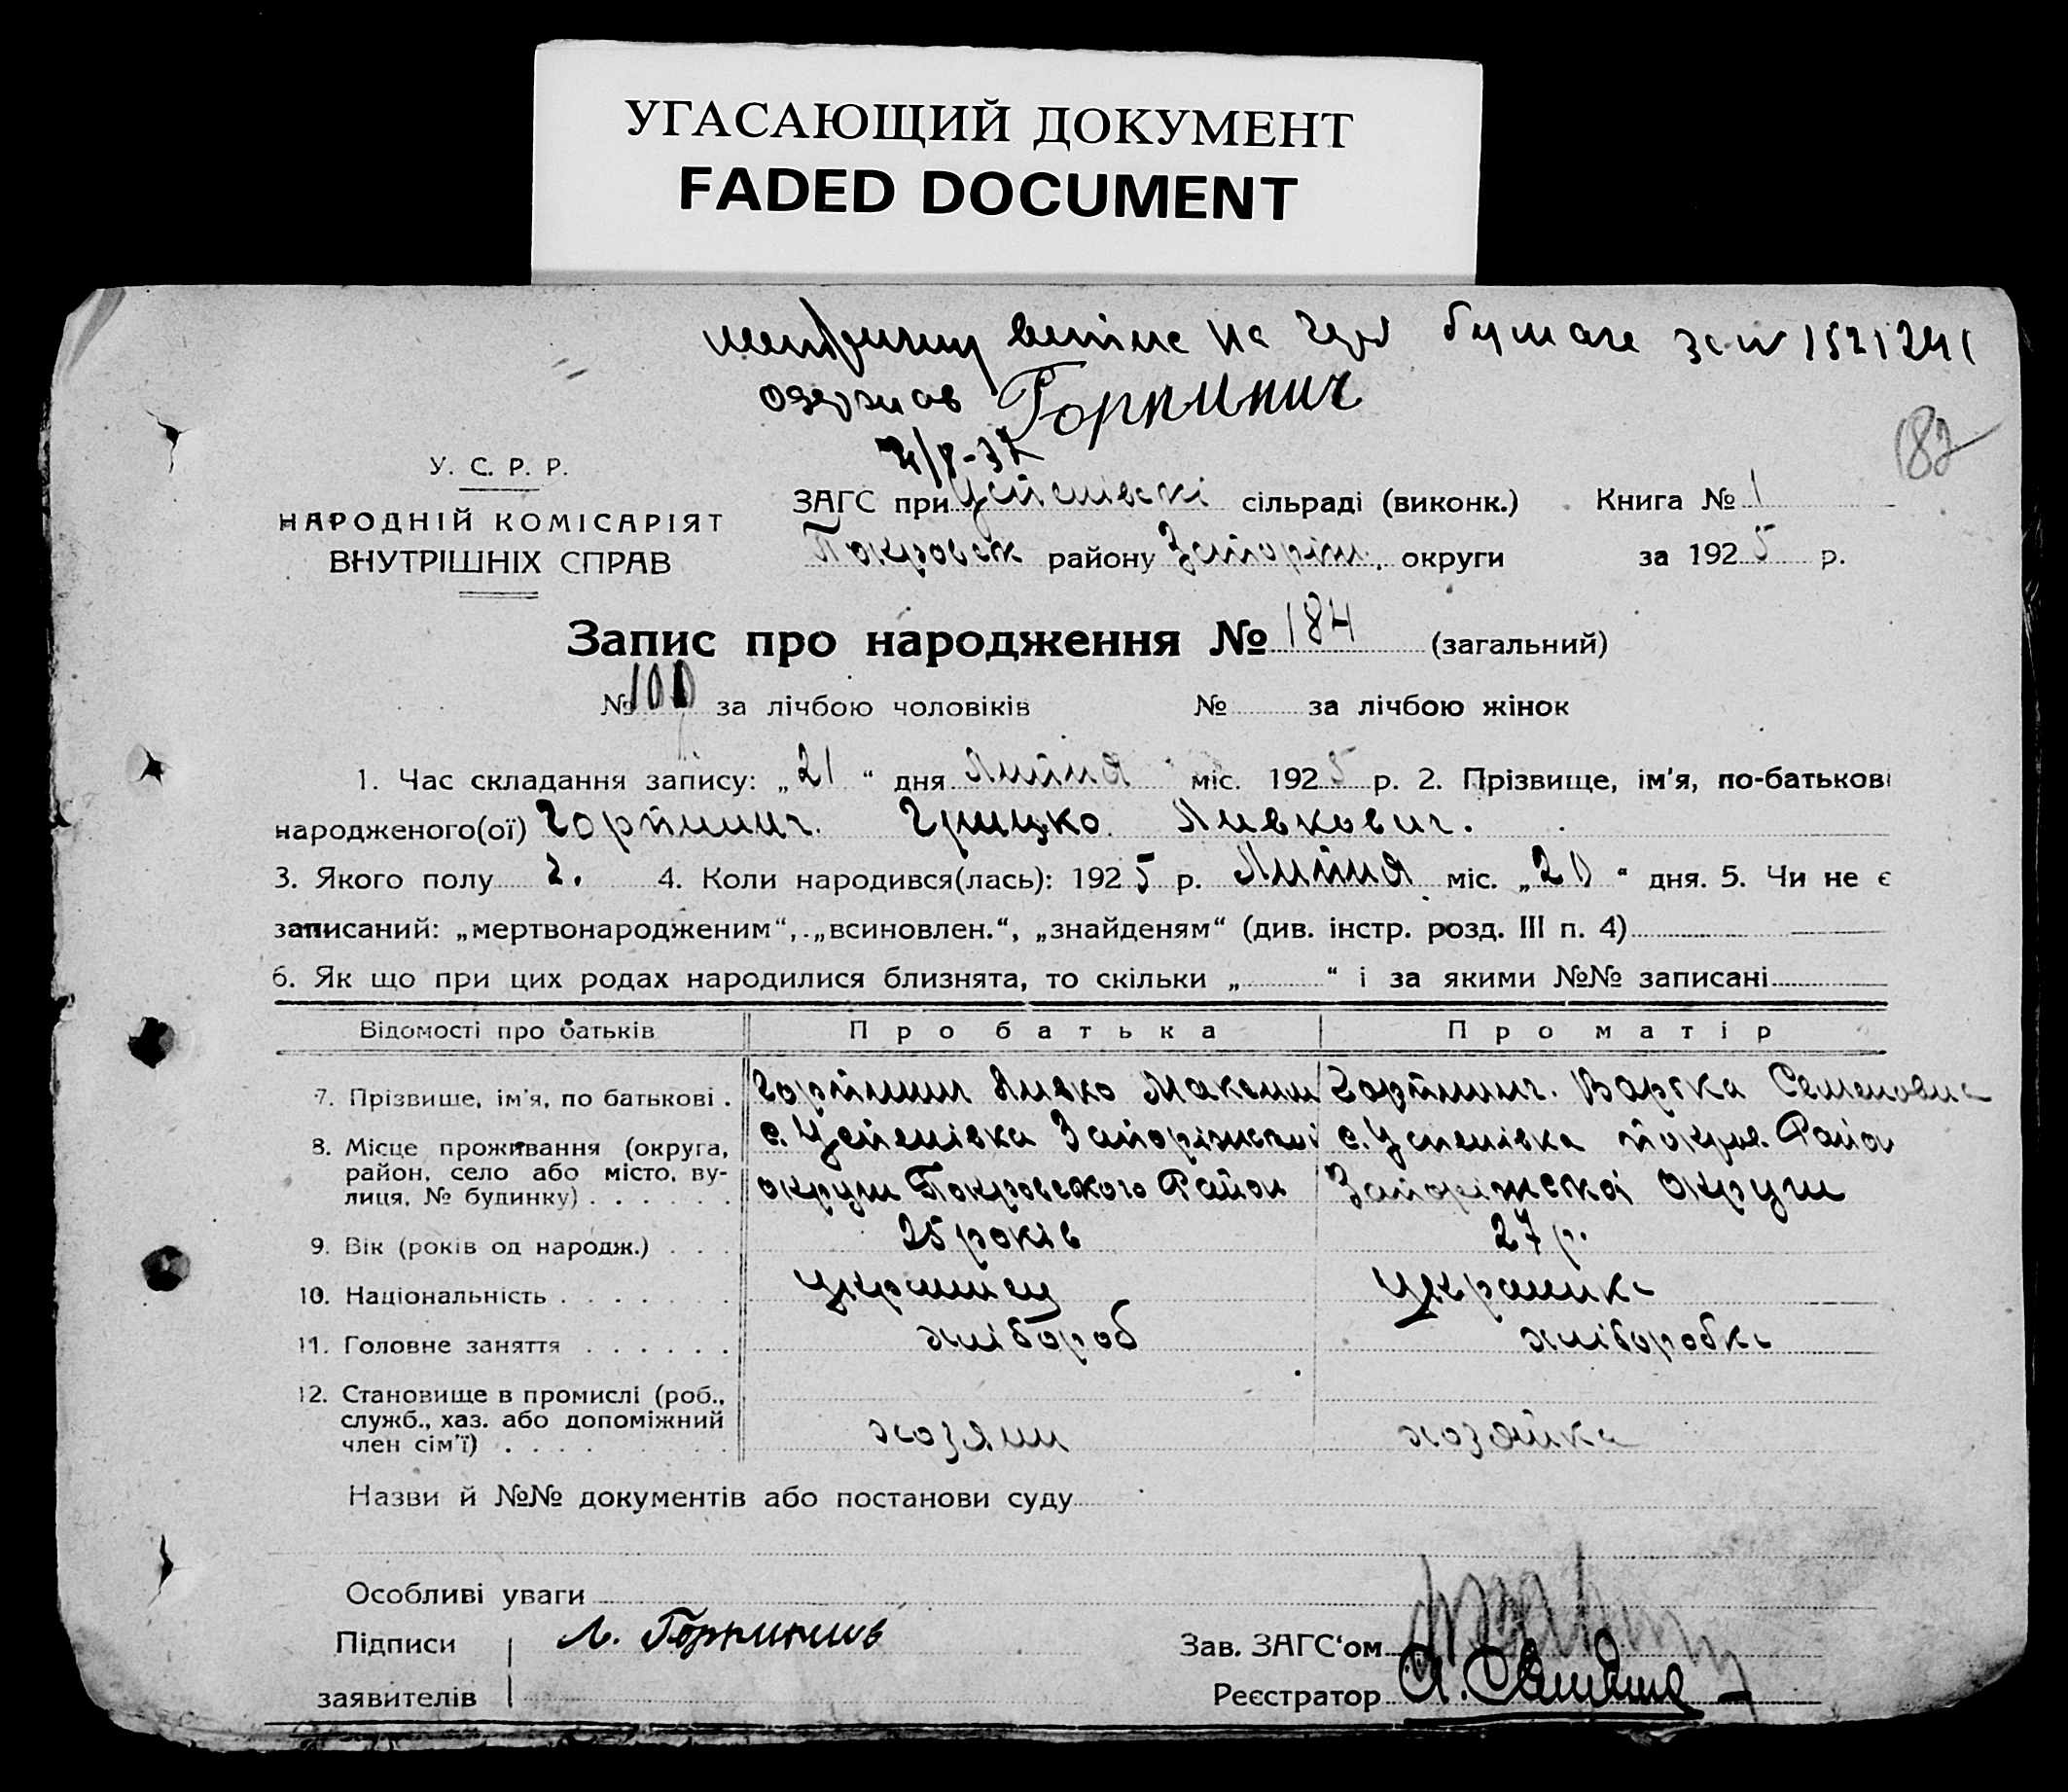 УГАСАЮЩИЙ ДОКУМЕНТ
FADED DOCUMENT
на бумаге за № 1521241
одержав Горпинич
/8-37
182
У. С. Р. Р.
НАРОДНІЙ КОМІСАРІЯТ
ВНУТРІШНІХ СПРАВ
ЗАГС при Успенівскі сільраді (виконк.) Книга № 1
Покровск району Запоріж. округи за 1925 р.
Запис про народження № 184 (загальний)
№ 100 за лічбою чоловіків № за лічбою жінок
1. Час складання запису: „21“ дня Липня міс. 1925 р. 2. Прізвище, ім'я, по-батькові
народженого(ої) Горпинич. Грицко Ливкович.
3. Якого полу ч. 4. Коли народився(лась): 1925 р. Липня міс. „20“ дня. 5. Чи не є
записаний: „мертвонародженим“, „всиновлен.“, „знайденям“ (див. інстр. розд. III п. 4)
6. Як що при цих родах народилися близнята, то скільки „ “ і за якими №№ записані
Відомості про батьків Про батька Про матір
7. Прізвище, ім'я, по батькові . Горпинич Ливко Максим Горпинич. Варька Семеновна
8. Місце проживання (округа, район, село або місто, вулиця, № будинку) . . . . . .
с. Успенівка Запоріжської с. Успенівка покров. Район
округи Покровського Район Запоріжскої Округи
9. Вік (років од народж.) . . . 25 років 27 р.
10. Національність . . . . . . . українец українка
11. Головне заняття . . . . . . хлібороб хліборобка
12. Становище в промислі (роб., служб., хаз. або допоміжний член сім'ї) . . . .
хозяин хозяйка
Назви й №№ документів або постанови суду
Особливі уваги
Підписи Л. Горпинич Зав. ЗАГС'ом
заявителів Реєстратор